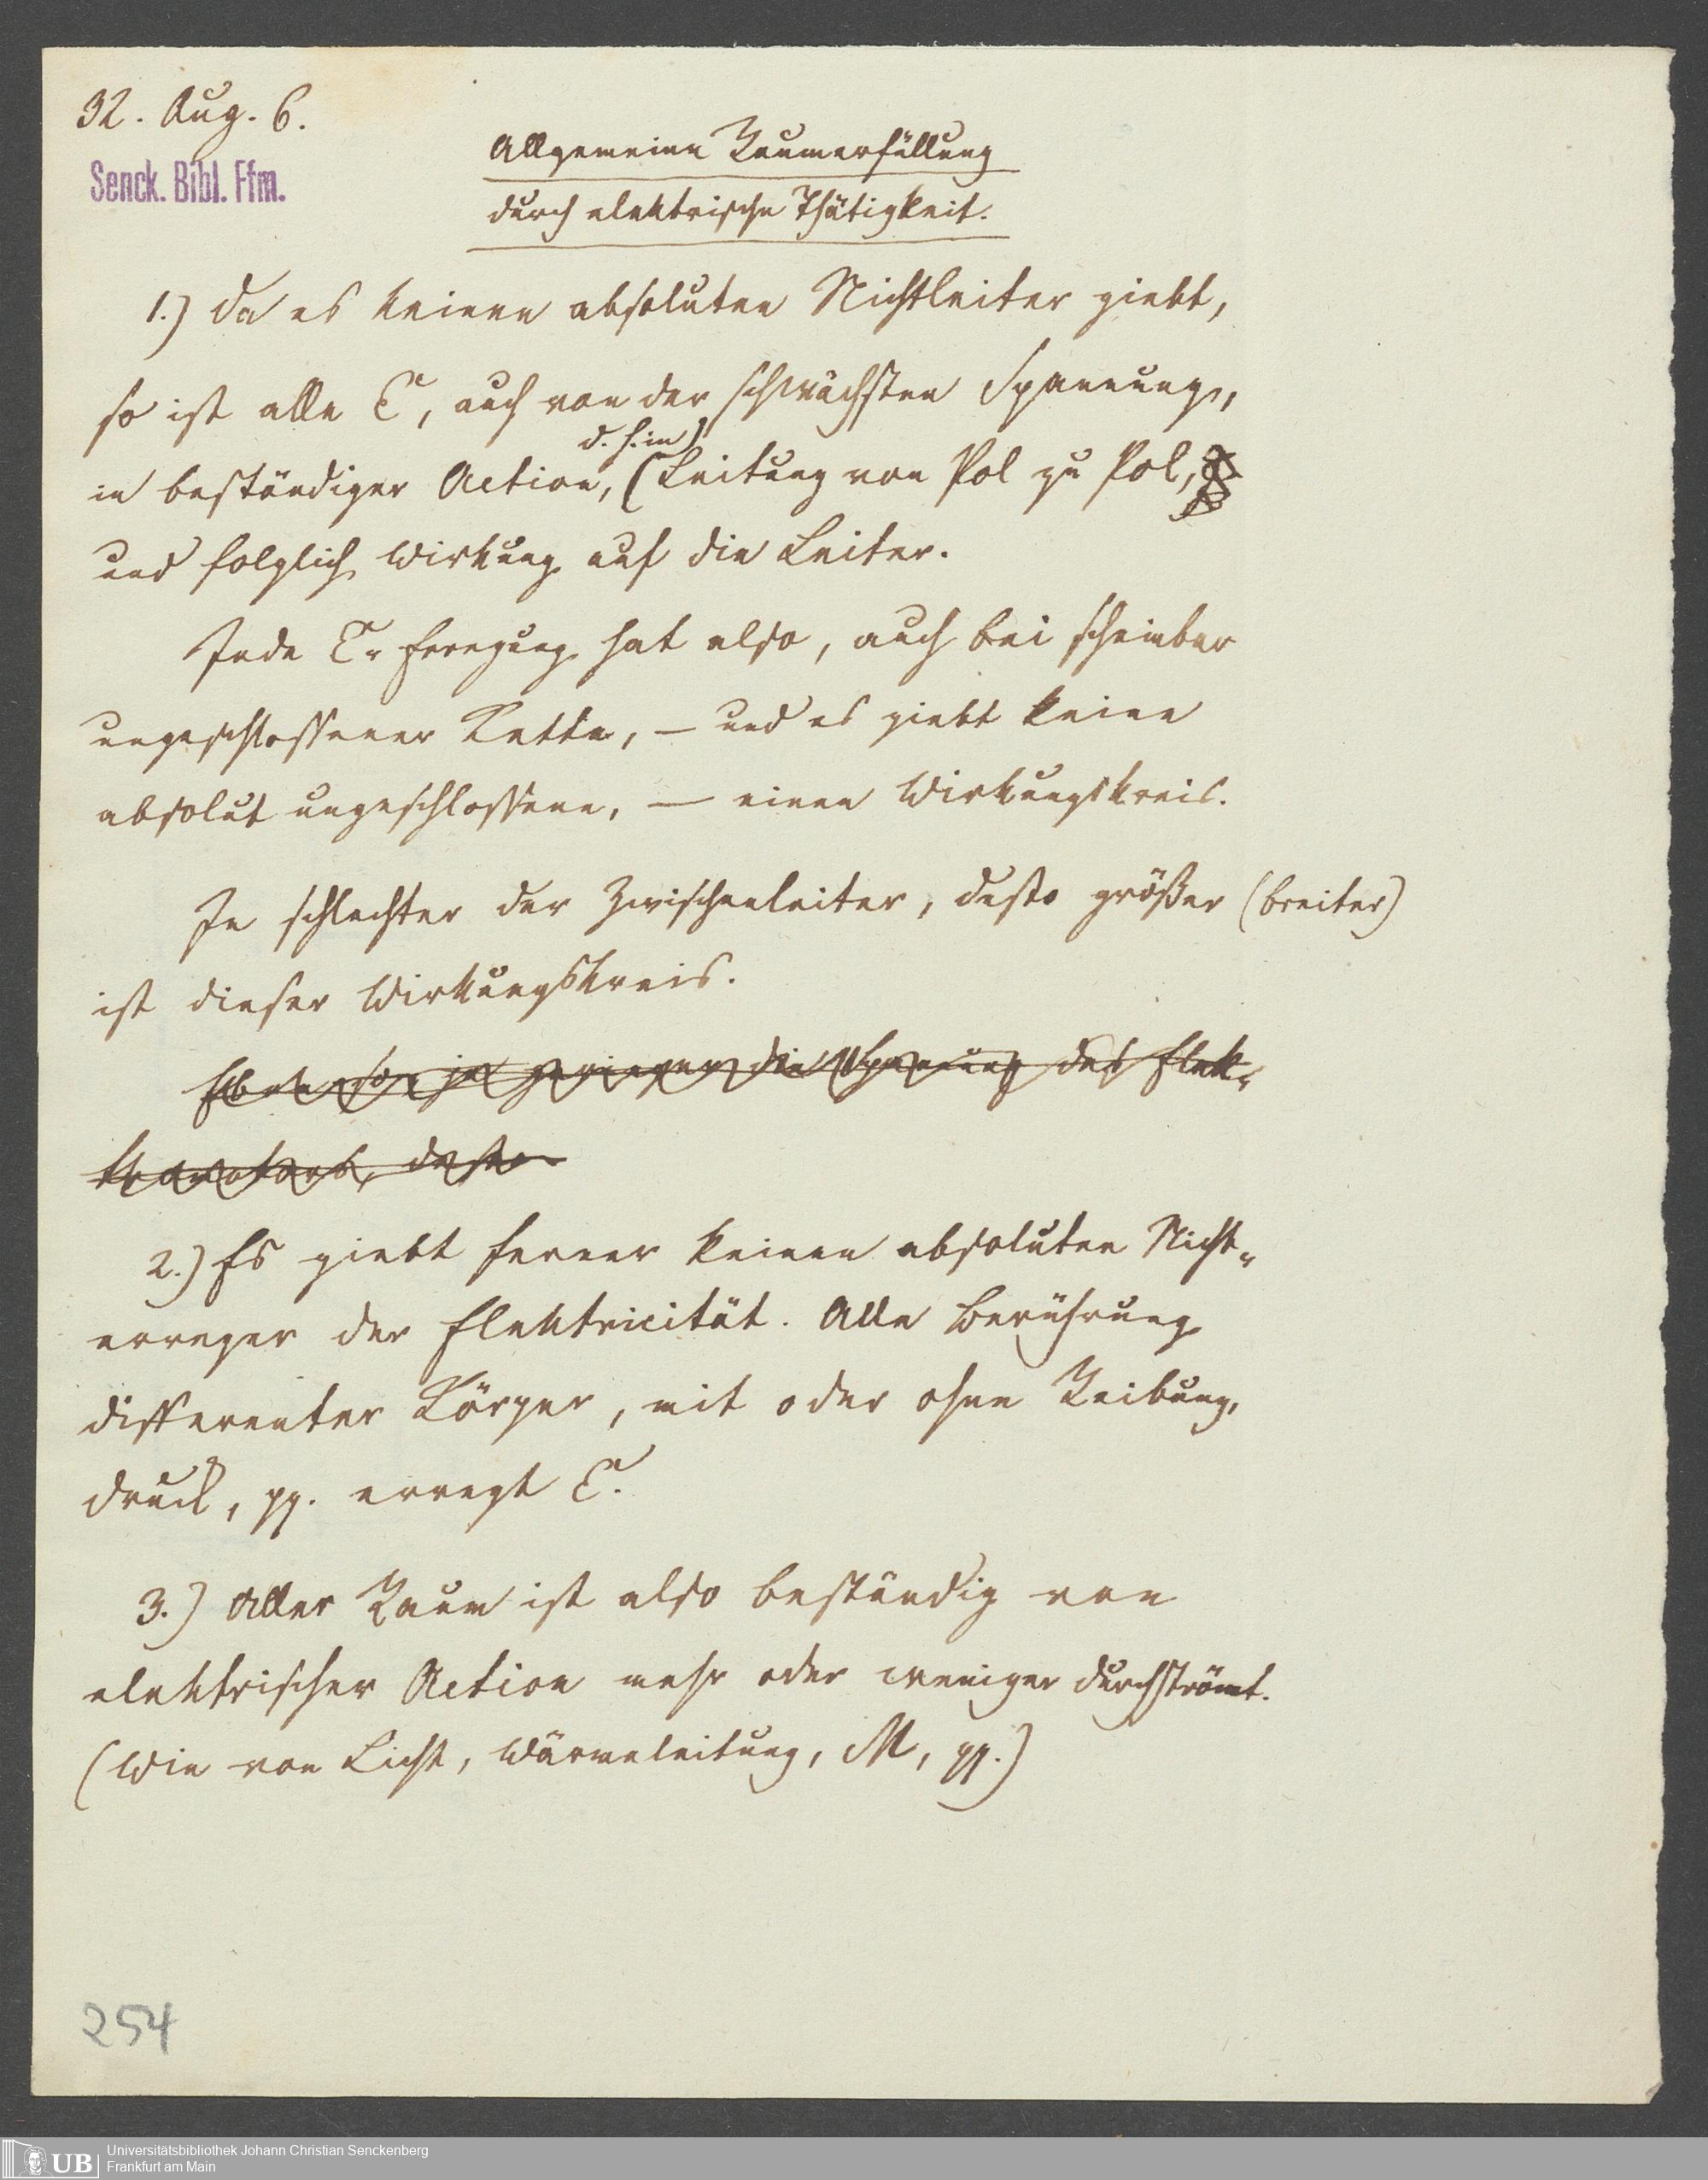 32. Aug. 6.
Senck. Bibl. Ffm.
Allgemeine Raumerfüllung
durch elektrische Thätigkeit.
1.) Da es keinen absoluten Nichtleiter giebt,
so ist alle E, auch von der schwächsten Spannung,
d. h. in)
in beständiger Action, (Leitung von Pol zu Pol,
und folglich Wirkung auf die Leiter.
Jede E-Erregung hat also, auch bei scheinbar
ungeschlossener Kette, – und es giebt keine
absolut ungeschlossene, – einen Wirkungskreis.
Je schlechter der Zwischenleiter, desto größer (breiter)
ist dieser Wirkungskreis.
Eben so, je geringer die Spannung des Elek-
tromotors, desto
2.) Es giebt ferner keinen absoluten Nicht-
erreger der Elektricität. Alle Berührung
differenter Körper, mit oder ohne Reibung,
Druck, pp. erregt E.
3.) Aller Raum ist also beständig von
elektrischer Action mehr oder weniger durchströmt.
(Wie von Licht, Wärmeleitung, M, pp.)
254
UB
Universitätsbibliothek Johann Christian Senckenberg
Frankfurt am Main